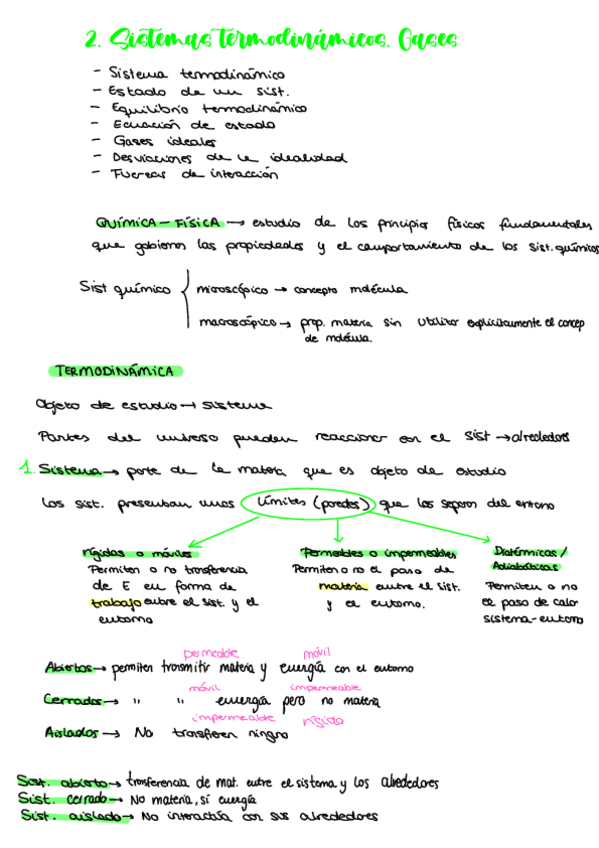 2. Sistemas termodinámicos. Gases
- Sistema termodinámico
- Estado de un sist.
- Equilibrio termodinámico
- Ecuación de estado
- Gases ideales
- Desviaciones de la idealidad
- Fuerzas de interacción
QUÍMICA-FÍSICA → estudio de los principios físicos fundamentales
que gobiernan las propiedades y el comportamiento de los sist. químicos
Sist químico
microscópico → concepto molécula
macroscópico → prop. materia sin utilizar explícitamente el concep
de molécula.
TERMODINÁMICA
Objeto de estudio → sistema
Partes del universo pueden reaccionar con el sist → alrededores
1. Sistema → parte de la materia que es objeto de estudio
Los sist. presentan unos límites (paredes) que los separan del entorno
rígidas o móviles
Permiten o no transferencia
de E en forma de
trabajo entre el sist. y el
entorno
Permeables o impermeables
Permiten o no el paso de
materia entre el sist.
y el entorno.
Diatérmicas /
Adiabáticas
Permiten o no
el paso de calor
sistema-entorno
permeable móvil
Abiertos → permiten transmitir materia y energía con el entorno
móvil impermeable
Cerrados → " " energía pero no materia
impermeable rígido
Aislados → No transfieren ninguno
Sist. abierto → transferencia de mat. entre el sistema y los alrededores
Sist. cerrado → No materia, sí energía
Sist. aislado → No interactúa con sus alrededores